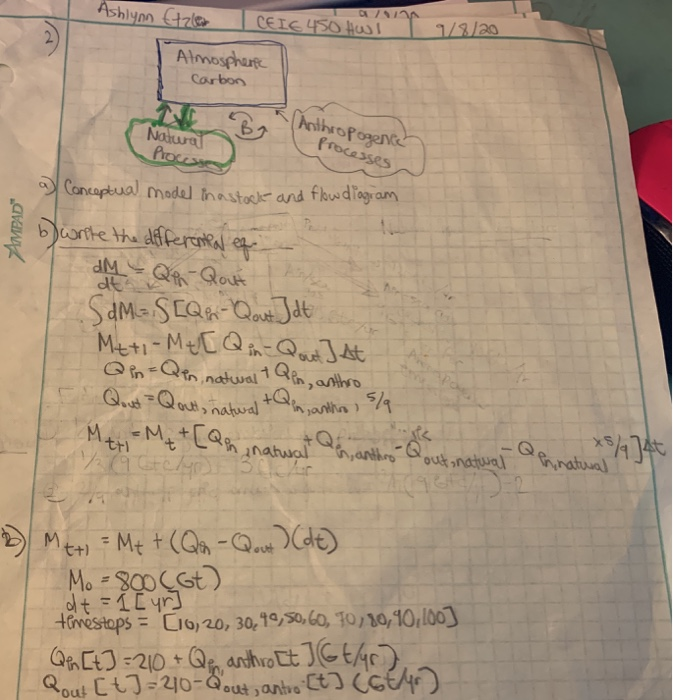 Ashlynn Etzler CEIE 450 HW1 9/8/20
2)
Atmospheric
Carbon
B
Natural
Processes
Anthropogenic
Processes
AMPAD
a) Conceptual model in a stock and flow diagram
b) write the differential eq.
dM/dt = Qin - Qout
∫dM = ∫[Qin - Qout]dt
Mt+1 - Mt[Qin - Qout]Δt
Qin = Qin, natural + Qin, anthro
Qout = Qout, natural + Qin, anthro, 5/9
Mt+1 = Mt + [Qin, natural + Qin, anthro - Qout, natural - Qin, natural x 5/9]Δt
Mt+1 = Mt + (Qin - Qout)(dt)
M0 = 800 (Gt)
dt = 1 [yr]
timesteps = [10, 20, 30, 40, 50, 60, 70, 80, 90, 100]
Qin[t] = 210 + Qin, anthro[t] (Gt/yr)
Qout[t] = 210 - Qout, antro[t] (Gt/yr)